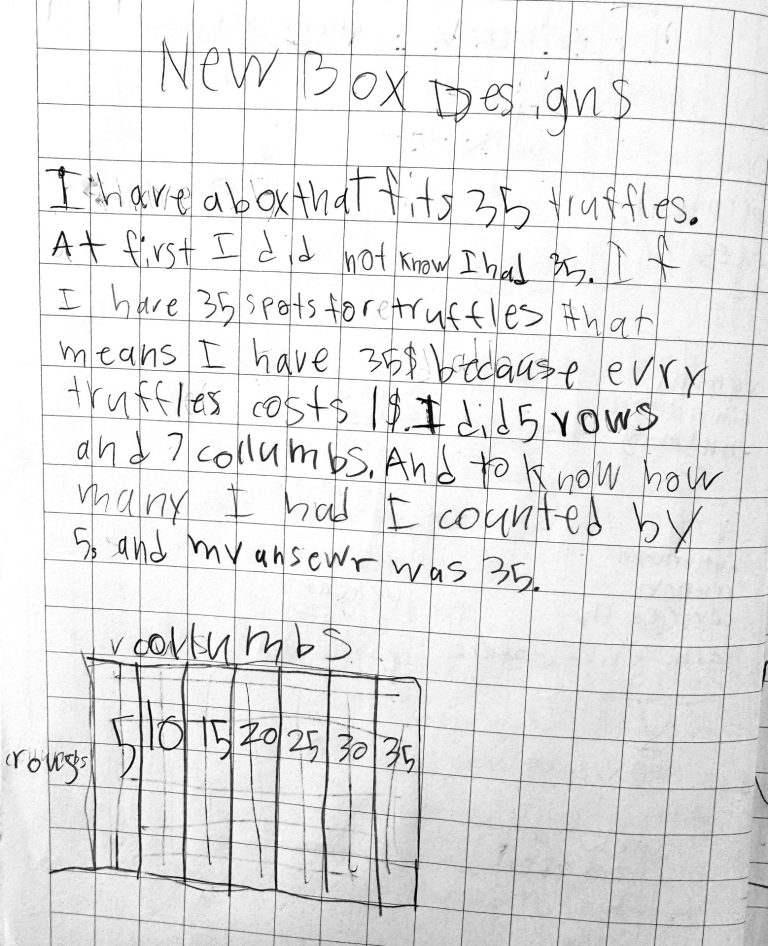 New Box Designs
I have a box that fits 35 truffles.
At first I did not know I had 35. If
I have 35 spots for truffles that
means I have 35$ because evry
truffles costs 1$. I did 5 rows
and 7 collumbs. And to know how
many I had I counted by
5s and my ansewr was 35.
collumbs
5 10 15 20 25 30 35
rows